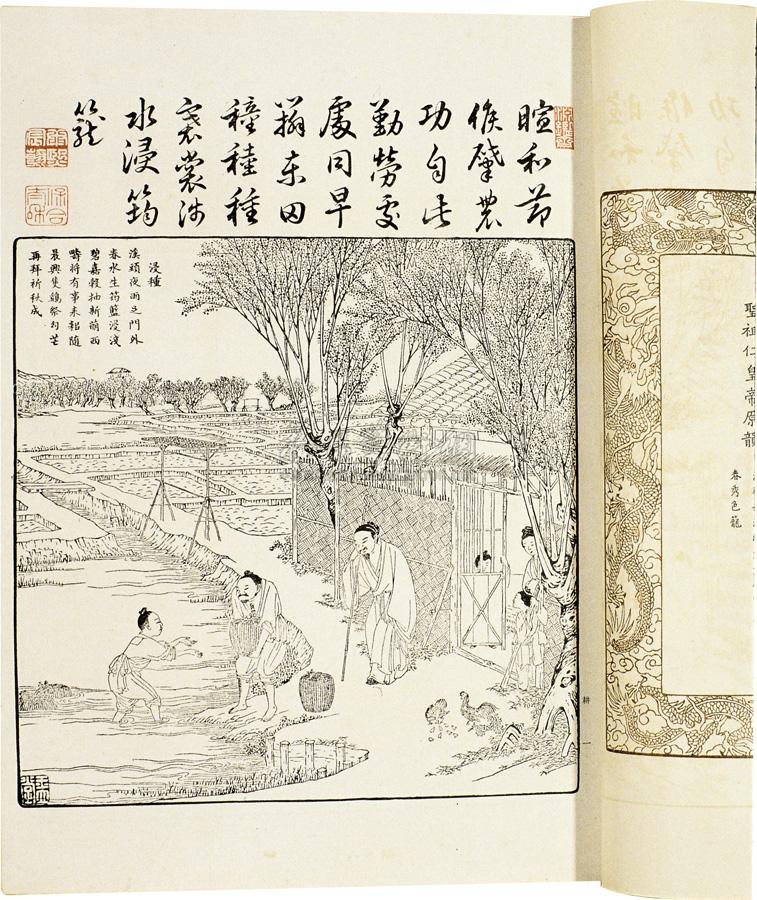 聖祖仁皇帝原韻
春秀色籠
暄和節
候肇農
功自此
勤勞處
處同早
辨東田
穜稑種
褰裳涉
水浸筠
籠
浸種
溪頭夜雨足門外
春水生筠籃浸淺
碧嘉穀抽新萌西
疇將有事耒耜隨
晨興隻鷄祭勾芒
再拜祈秋成
耕 一